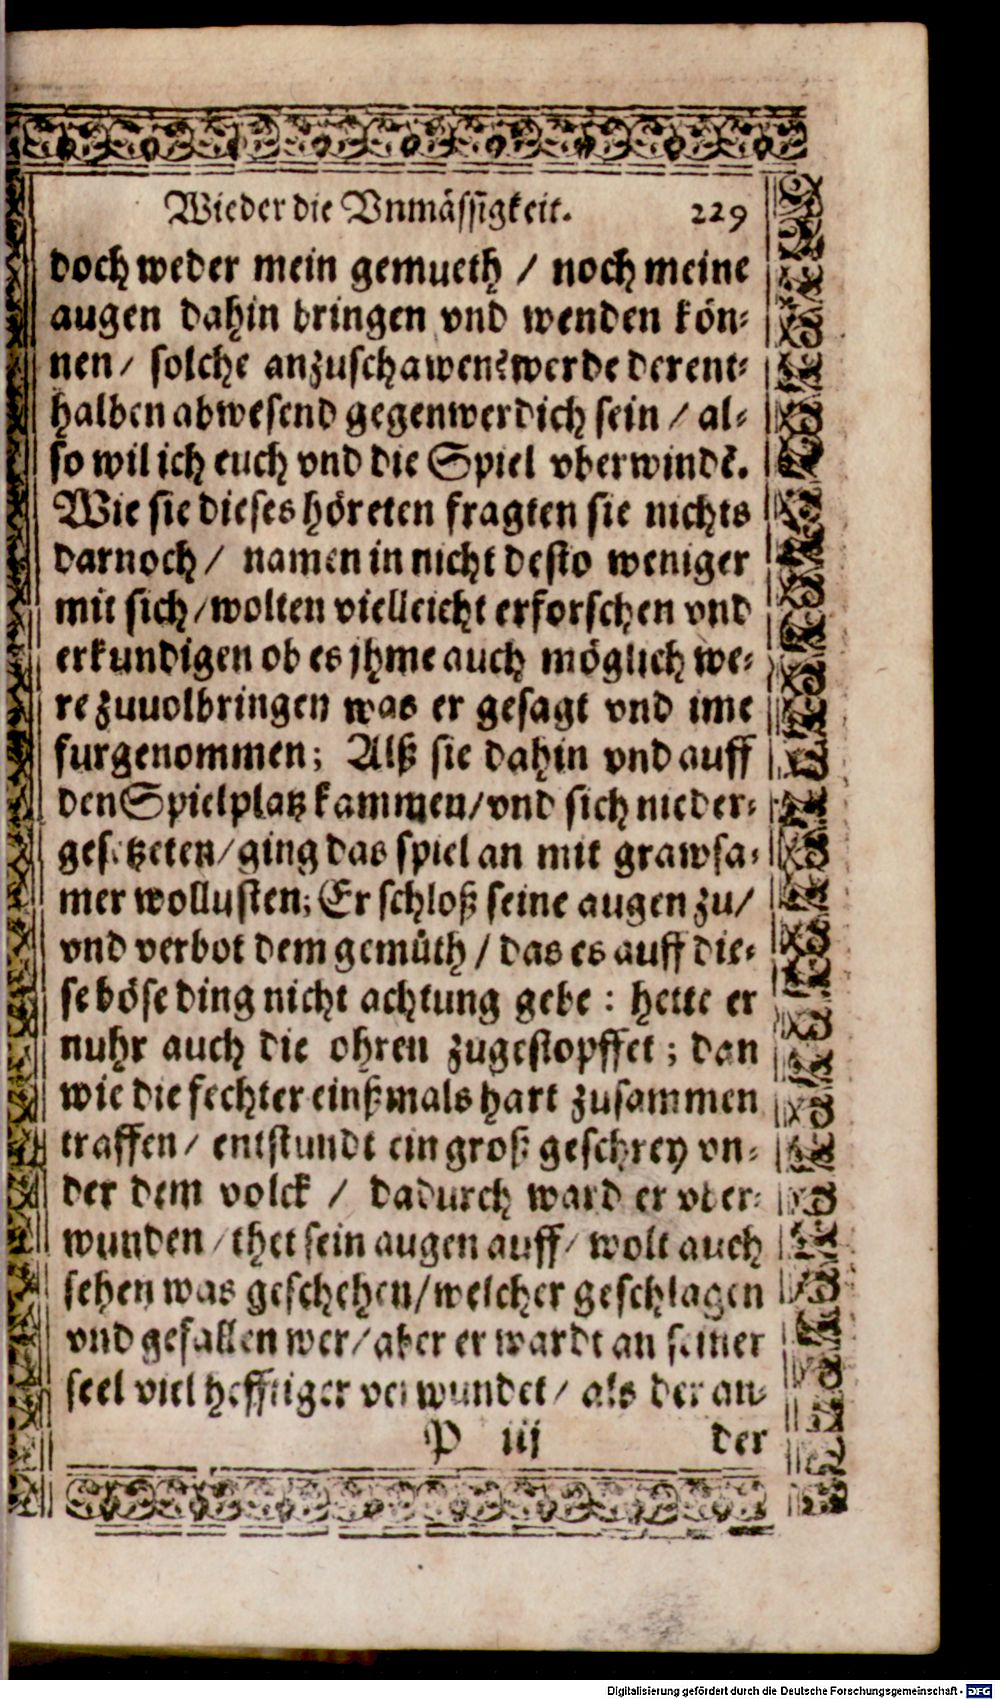 Wieder die Vnmässigkeit. 229
doch weder mein gemueth / noch meine
augen dahin bringen vnd wenden kön-
nen / solche anzuschawen? werde derent-
halben abwesend gegenwerdich sein / al-
so wil ich euch vnd die Spiel vberwindẽ.
Wie sie dieses höreten fragten sie nichts
darnoch / namen in nicht desto weniger
mit sich / wolten vielleicht erforschen vnd
erkundigen ob es jhme auch möglich we-
re zuuolbringen was er gesagt vnd ime
furgenommen; Alß sie dahin vnd auff
den Spielplatz kammen / vnd sich nieder-
gesetzeten / ging das spiel an mit grawsa-
mer wollusten; Er schloß seine augen zu /
vnd verbot dem gemüth / das es auff die-
se böse ding nicht achtung gebe : hette er
nuhr auch die ohren zugestopffet ; dan
wie die fechter einßmals hart zusammen
traffen / entstundt ein groß geschrey vn-
der dem volck / dadurch ward er vber-
wunden / thet sein augen auff / wolt auch
sehen was geschehen / welcher geschlagen
vnd gefallen wer / aber er wardt an seiner
seel viel hefftiger verwundet / als der an-
P iij der
Digitalisierung gefördert durch die Deutsche Forschungsgemeinschaft - DFG